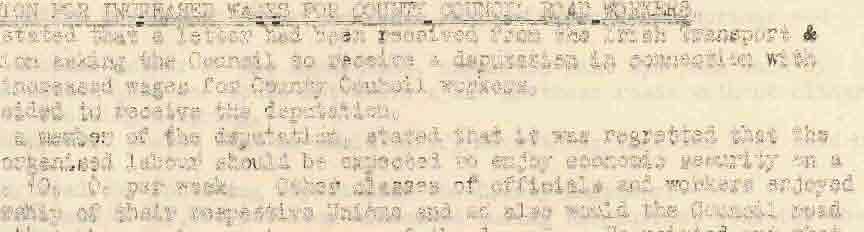 ION FOR INCREASED WAGES FOR COUNTY COUNCIL ROAD WORKERS
stated that a letter had been received from the Irish Transport &
ion asking the Council to receive a deputation in connection with
increased wages for County Council workers.
cided to receive the deputation.
a member of the deputation, stated that it was regretted that the
organised labour should be expected to enjoy economic security on a
10. 0. per week. Other classes of officials and workers enjoyed
rship of their respective Unions and so also would the Council road